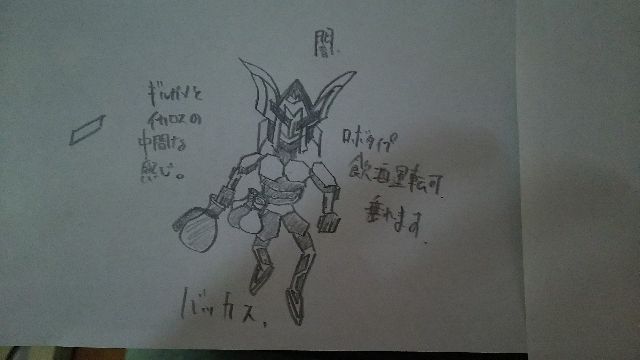 闇.
ギルガメと
イカロスの
中間な
感じ。
ロボタイプ
飲酒運転可
垂れます.
バッカス.